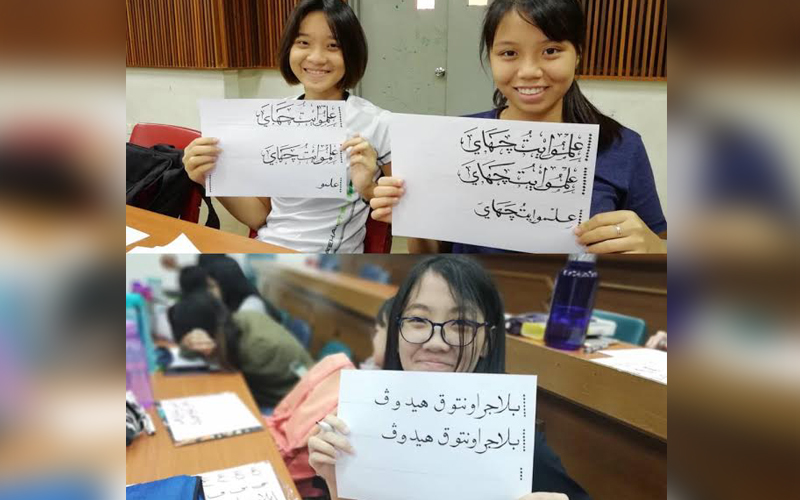 علمو ايت چهاي
علمو ايت چهاي
علمو
علمو ايت چهاي
علمو ايت چهاي
علمو ايت چهاي
بلاجر اونتوق هيدوڤ
بلاجر اونتوق هيدوڤ